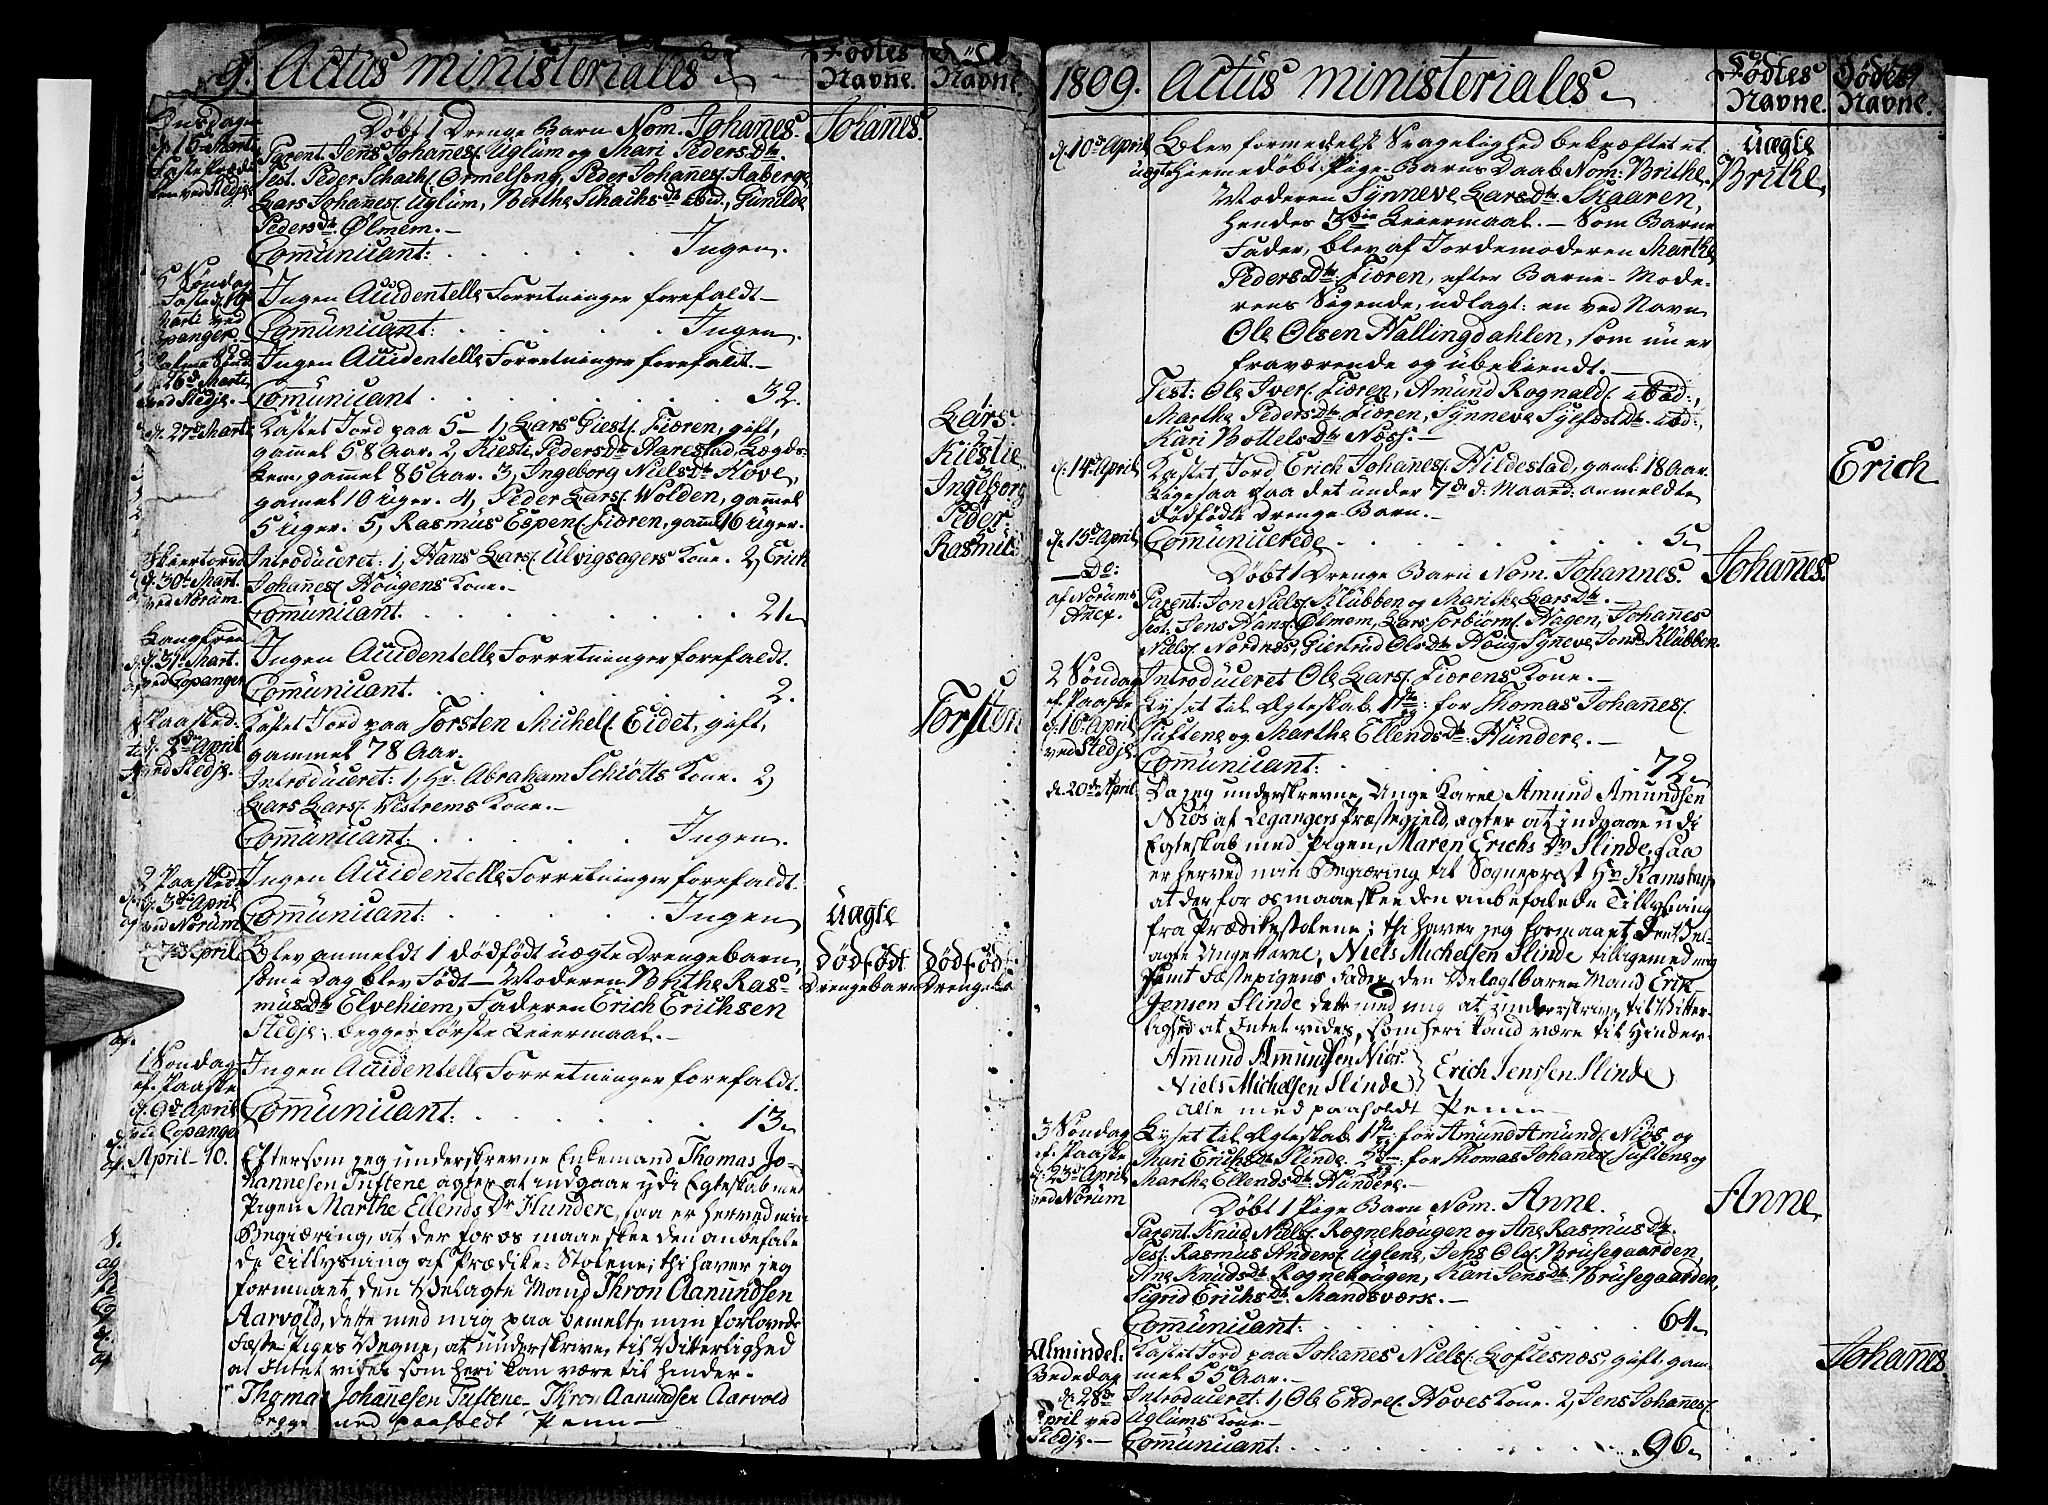 9. Actus ministeriales
Fødtes Navne.
Navne.
Onsdagen
d: 15 Marti
ved Stedje
Døbt 1 Drenge Barn Nom. Johañes.
Johañes.
Parent. Jens Johañes: Uglum og Mari Peders Dtr.
Test. Peder Schack Ormelsong, Peder Johanes: Aaberge,
Lars Johañes: Uglum, Berthe Schachs Dtr ibid., Gunilde
Peders Dtr Ølmem.—
Com̄unicant: Ingen.
5 Søndag
Faste d. 19
Marti ved
Copanger.
Ingen Accidentelle Forretninger forefaldt—
Com̄unicant: Ingen.
Palme Sønd.
d. 26 Marti
ved Stedje.—
Ingen Accidentelle Forretninger forefaldt.—
Com̄unicant 32.
d. 27 Marti
Kastet Jord paa 5— 1, Lars Giest: Fiæren, gift,
gamel 58 Aar. 2, Kiesti Peders Dtr Harestad, Lægds-
lem, gam̄el 86 Aar. 3, Ingeborg Niels Dtr Hove,
gam̄el 10 Uger. 4, Peder Lars: Wolden, gam̄el
5 Uger. 5, Rasmus Espen: Fiæren, gaml 16 Uger.
Lars.
2
Kiestie
3
Ingeborg
4
Peder.
5
Rasmus
Skiertorsd.
d. 30t Mart.
ved Norum.
Introduceret: 1, Hans Lars: Ulvigsagers Kone. 2, Erich
Johañes: Hougens Kone.—
Com̄unicant. 21
Langfred
d. 31 Mart.
ved Copanger
Ingen Accidentelle Forretninger forefaldt.
Com̄unicant. 2.
Paasked.
d. 2den April
ved Stedje.
Kastet Jord paa Torsten Michels: Eidet, gift,
gam̄el 78 Aar.
Torsten
Introduceret: 1, Hr: Abraham Schiøtts Kone. 2,
Lars Lars: Vestrems Kone.—
Com̄unicant: Ingen.
2 Paasked.
d. 3die April
ved Norum
Ingen Accidentelle Forretninger forefaldt.
Com̄unicant: Ingen
d. 7de April
Blev anmeldt 1 dødfødt uægte Drengebarn,
som̄e Dag blev Født— Moderen Brithe Ras-
mus Dtr Elvehiem, Faderen Erich Erichsen
Stedje; begges første Leiermaal.—
Uægte
dødfødt
Drengebarn
dødfød
Drengeba
1 Søndag
ef. Paaske
d. 9d April
ved Copanger
Ingen Accidentelle Forretninger forefaldt.
Com̄unicant: 13
April—10.
Eftersom jeg underskrevne Enkemand Thomas Jo-
hannesen Tuftene agter at indgaae udi Egteskab med
Pigen Marthe Ellends Dr Hundere, saa er herved min
Begiæring, at der for os maae skee den anbefale-
de Tillysning af Prædike-Stolene; thi haver jeg
formaaet den Velagte Mand Thron Aanundsen
Aarvold, dette med mig paa bemelte min forlovede
Fæste Piges Vegne, at underskrive, til Vitterlighed
at Intet vides som heri kan være til hinder.
Thomas Johañesen Tuftene— Thron Aanundsen Aarvold
begge med paaholdt Penn—
1809. Actus ministeriales
Fødtes Navne.
Dødes Navne.
d. 10de April
Blev formedelst Svagelighed bekræftet et
uægte hiemedøbt Pige-Barns Daab Nom: Brithe,
uægte
Brithe,
Moderen Synneve Lars Dtr Skaaren,
hendes 3die Leiermaal.— Som Barne
Fader, blev af Jordemoderen Marthe
Peders Dtr Fiæren, efter Barne-Mode-
rens Sigende, udlagt: en ved Navn
Ole Olsen Hallingdahlen, som nu er
fraværende og ubekiendt.—
Test: Ole Iver: Fiæren, Amund Rognald: ibid:,
Marthe Peders Dtr Fiæren, Synneve Sylfæst Dtr ibd:,
Kari Bottels Dtr Næss.—
d. 14d April
Kastet Jord Erich Johañes: Hildestad, gaml: 18 Aar.
Ligesaa paa det under 7de d: Maand: anmeldte
dødfødte Drenge-Barn.—
Erich
d. 15d April
Com̄unicerede 5
Do:
af Norums
Anex.
Døbt 1 Drenge Barn Nom. Johannes.
Johañes.
Parent: Jon Niels: Klubben og Marithe Lars Dtr.—
Test. Jens Han: Ølmem, Lars Torbiørn: Hagen, Johañes
Niels: Nordnæs, Giertrud Ols Dtr Houg, Syneve Jons Dr Klubben.
2 Søndag
ef. Paaske
d. 16d April
ved Stedje
Introduceret Ole Lars: Fiærens Kone.—
Lyset til Ægteskab 1ste g: for Thomas Johañes:
Tuftene og Marthe Ellends Dtr Hundere.—
Com̄unicant: 72
d. 20de April
Da jeg underskrevne Unge Karel Amund Amundsen
Niøs af Legangers Præstegield, agter at indgaae udi
Egteskab med Pigen, Maren Erichs Dr Slinde, saa
er herved min Begiæring til Sogneprest Hr Kamstrup
at der for os maae skee den anbefalede Tillysning
fra Prædikestolene; thi haver jeg formaaet Den Vel-
agte Unge Karel, Niels Michelsen Slinde tilligemed mig
samt Fæstepigens Fader, den Velagtbare Mand Erik
Jensen Slinde dette med mig at underskrive, til Vitter-
lighed at Intet vides, som heri kand være til Hinder—
Amund Amundsen Niøs.
Niels Michelsen Slinde
Erich Jenssen Slinde
alle med paaholdt Penn—
3 Søndag
ef. Paaske
d. 23d April
ved Norum
Lyset til Ægteskab 1ste g: for Amund Amund: Niøs og
Mari Erichs Dtr Slinde. 2den g: for Thomas Johañes: Tuftene og
Marthe Ellends Dtr Hundere.—
Døbt 1 Pige Barn Nom. Anne.
Anne
Parent. Knud Niels: Rognehougen og Ane Rasmus Dtr.
Test. Rasmus Anders: Uglene, Jens Ols: Brusegaarden,
Ane Knuds Dtr Rognehougen, Kari Jens Dtr Brusegaarden,
Sigrid Erichs Dtr Mandsværk.—
Com̄unicant: 64
Almindel.
Bededag
d. 28de
April ved
Stedje.—
Kastet Jord paa Johañes Niels: Loftesnæs, gift, gam-
mel 55 Aar.—
Johañes
Introduceret: 1, Ole Endre: Hoves Kone. 2, Jens Johañes:
Uglums Kone.—
Com̄unicant: 96